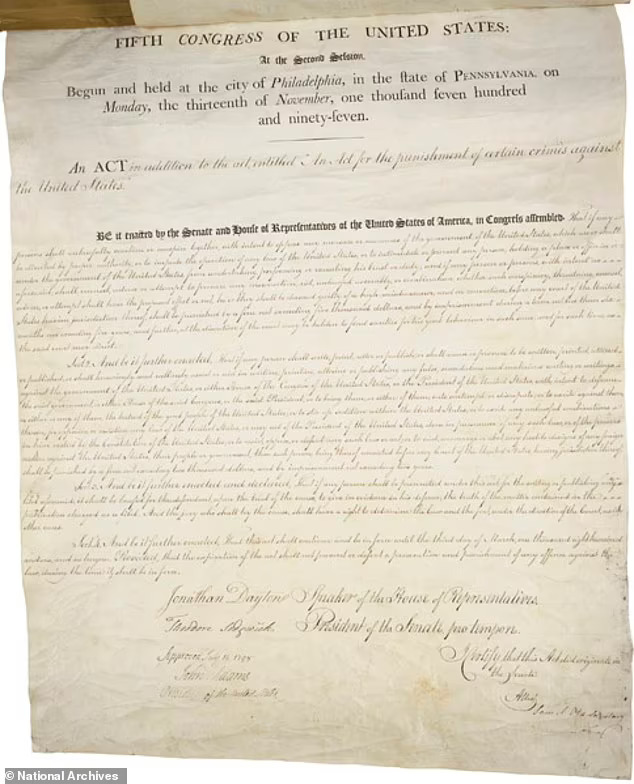 FIFTH CONGRESS OF THE UNITED STATES:
At the Second Session,
Begun and held at the city of Philadelphia, in the ſtate of PENNSYLVANIA, on
Monday, the thirteenth of November, one thouſand ſeven hundred
and ninety-ſeven.
An ACT in addition to the act, entitled "An Act for the punishment of certain crimes against
the United States."
BE it enacted by the Senate and House of Representatives of the United States of America, in Congress assembled, That if any
persons shall unlawfully combine or conspire together, with intent to oppose any measure or measures of the government of the United States, which are or shall
be directed by proper authority, or to impede the operation of any law of the United States, or to intimidate or prevent any person, holding a place or office in or
under the government of the United States, from undertaking, performing or executing his trust or duty; and if any person or persons, with intent as
aforesaid, shall counsel, advise or attempt to procure any insurrection, riot, unlawful assembly, or combination, whether such conspiracy, threatening, counsel,
advice, or attempt shall have the proposed effect or not, he or they shall be deemed guilty of a high misdemeanor, and on conviction, before any court of the United
States having jurisdiction thereof, shall be punished by a fine not exceeding five thousand dollars, and by imprisonment during a term not less than six
months nor exceeding five years; and further, at the discretion of the court may be holden to find sureties for his good behaviour in such sum, and for such time, as
the said court may direct.
Sect. 2. And be it further enacted, That if any person shall write, print, utter or publish, or shall cause or procure to be written, printed, uttered
or published, or shall knowingly and willingly assist or aid in writing, printing, uttering or publishing any false, scandalous and malicious writing or writings
against the government of the United States, or either House of the Congress of the United States, or the President of the United States, with intent to defame
the said government, or either House of the said Congress, or the said President, or to bring them, or either of them, into contempt or disrepute; or to excite against them,
or either or any of them, the hatred of the good people of the United States, or to stir up sedition within the United States, or to excite any unlawful combinations
therein, for opposing or resisting any law of the United States, or any act of the President of the United States, done in pursuance of any such law, or of the powers
in him vested by the Constitution of the United States, or to resist, oppose, or defeat any such law or act, or to aid, encourage or abet any hostile designs of any foreign
nation against the United States, their people or government, then such person, being thereof convicted before any court of the United States having jurisdiction thereof,
shall be punished by a fine not exceeding two thousand dollars, and by imprisonment not exceeding two years.
Sect. 3. And be it further enacted and declared, That if any person shall be prosecuted under this act, for the writing or publishing any
libel aforesaid, it shall be lawful for the defendant, upon the trial of the cause, to give in evidence in his defence, the truth of the matter contained in the
publication charged as a libel. And the jury who shall try the cause, shall have a right to determine the law and the fact, under the direction of the court, as in
other cases.
Sect. 4. And be it further enacted, That this act shall continue and be in force until the third day of March, one thousand eight hundred
and one, and no longer: Provided, that the expiration of the act shall not prevent or defeat a prosecution and punishment of any offence against the
law, during the time it shall be in force.
Jonathan Dayton Speaker of the House of Representatives.
Theodore Sedgwick President of the Senate, pro tempore.
Approved July 14, 1798
John Adams
President of the United States.
I Certify that this Act did originate in
the Senate
Attest,
Sam. A. Otis Secretary
© National Archives